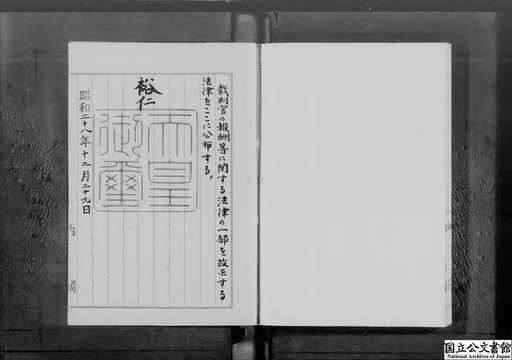 裁判官の報酬等に関する法律の一部を改正する
法律をここに公布する。
裕仁
天皇
御璽
昭和二十八年十二月二十九日
国立公文書館
National Archives of Japan